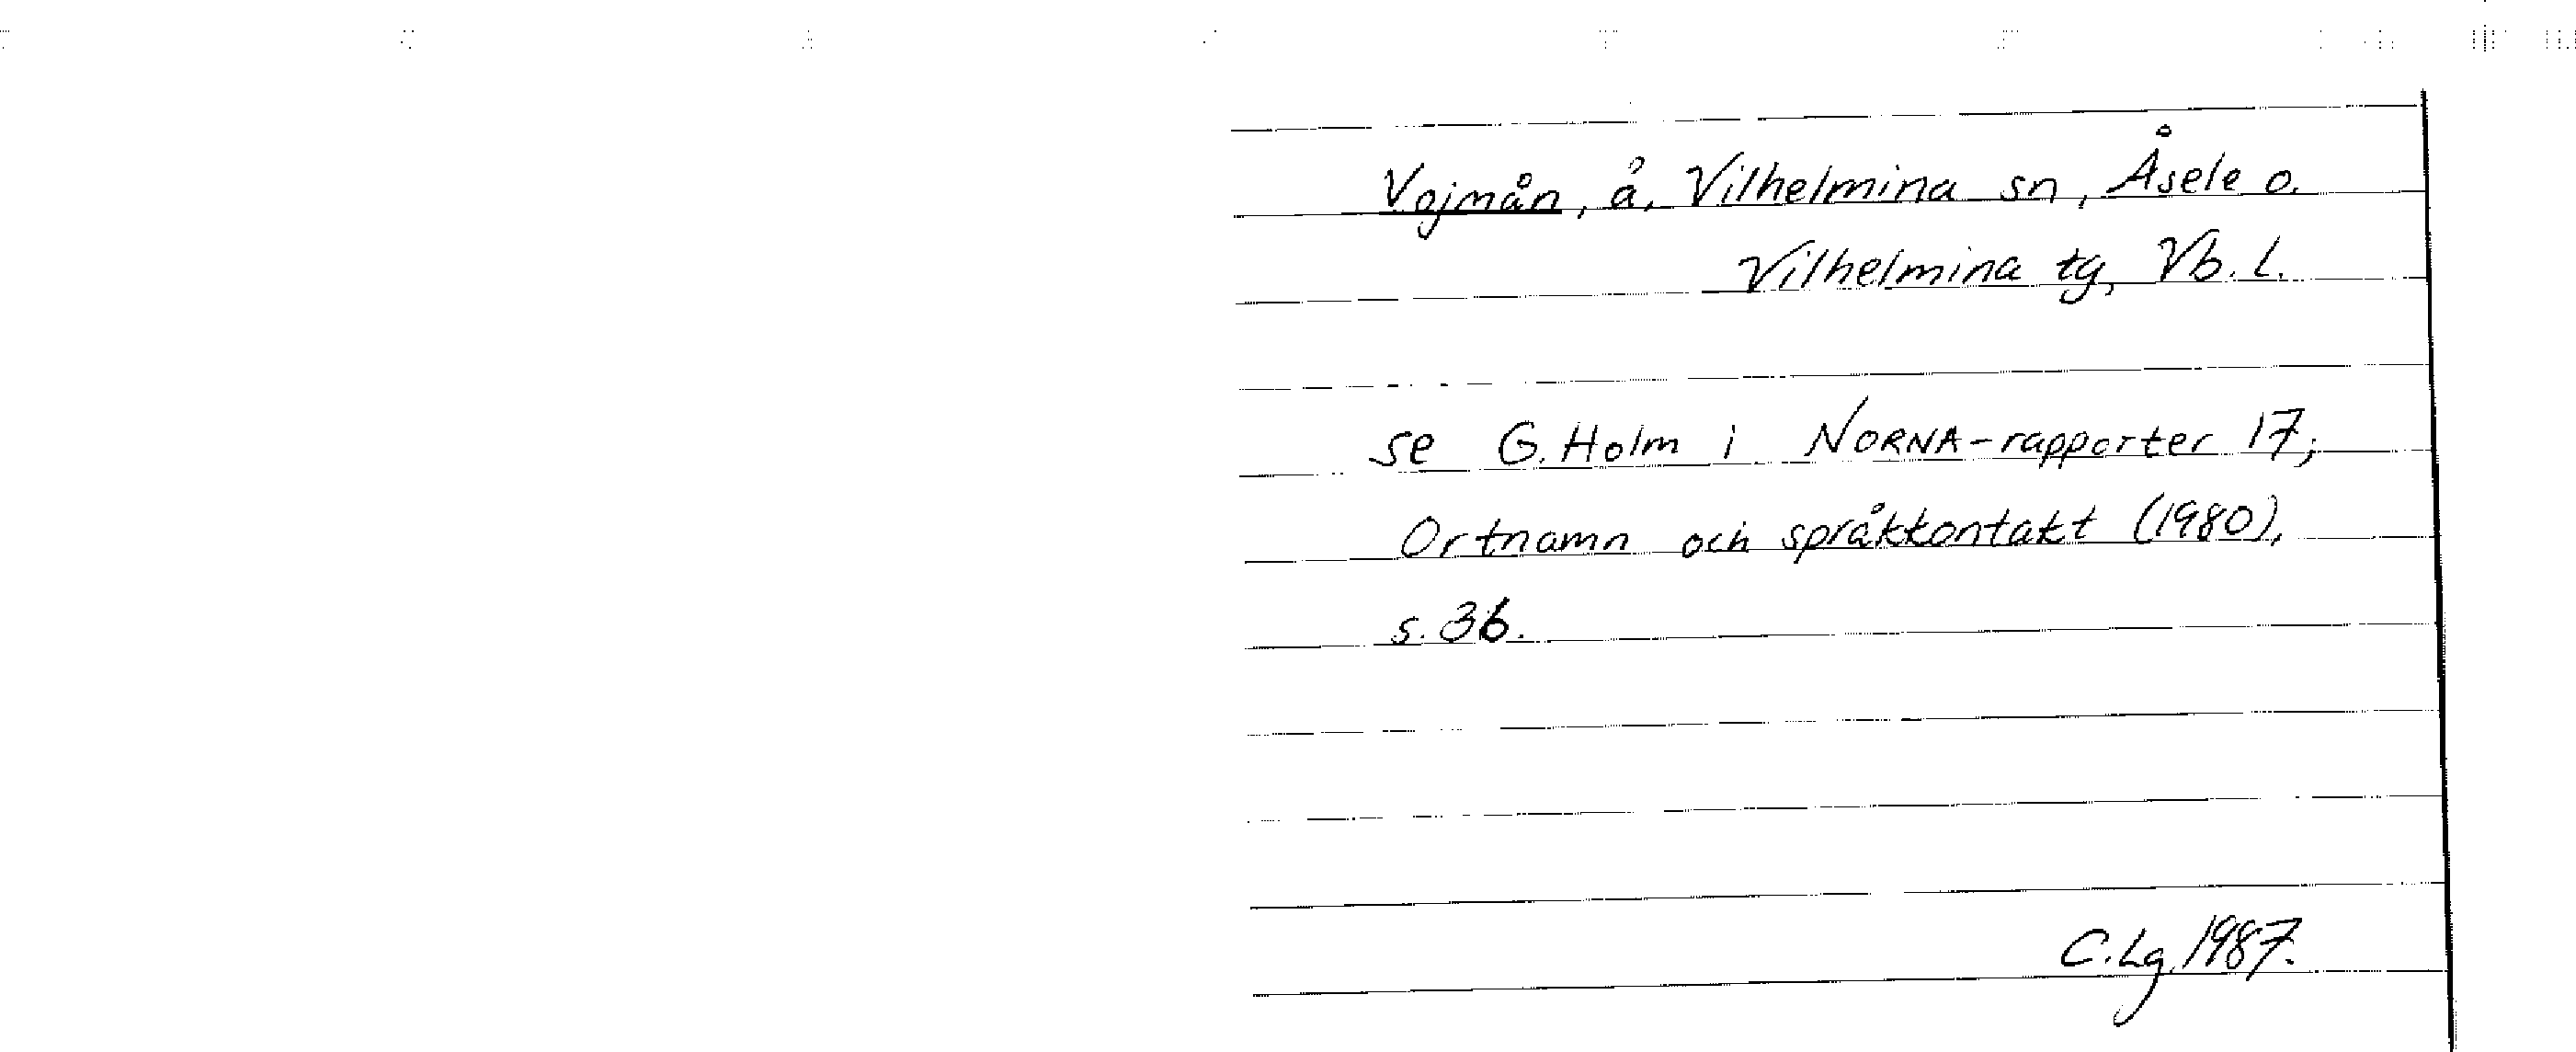 Vojmån, å, Vilhelmina sn, Åsele o.
Vilhelmina tg, Vb. l.
se G. Holm i NORNA-rapporter 17;
Ortnamn och språkkontakt (1980),
s. 36.
C. Lg. 1987.